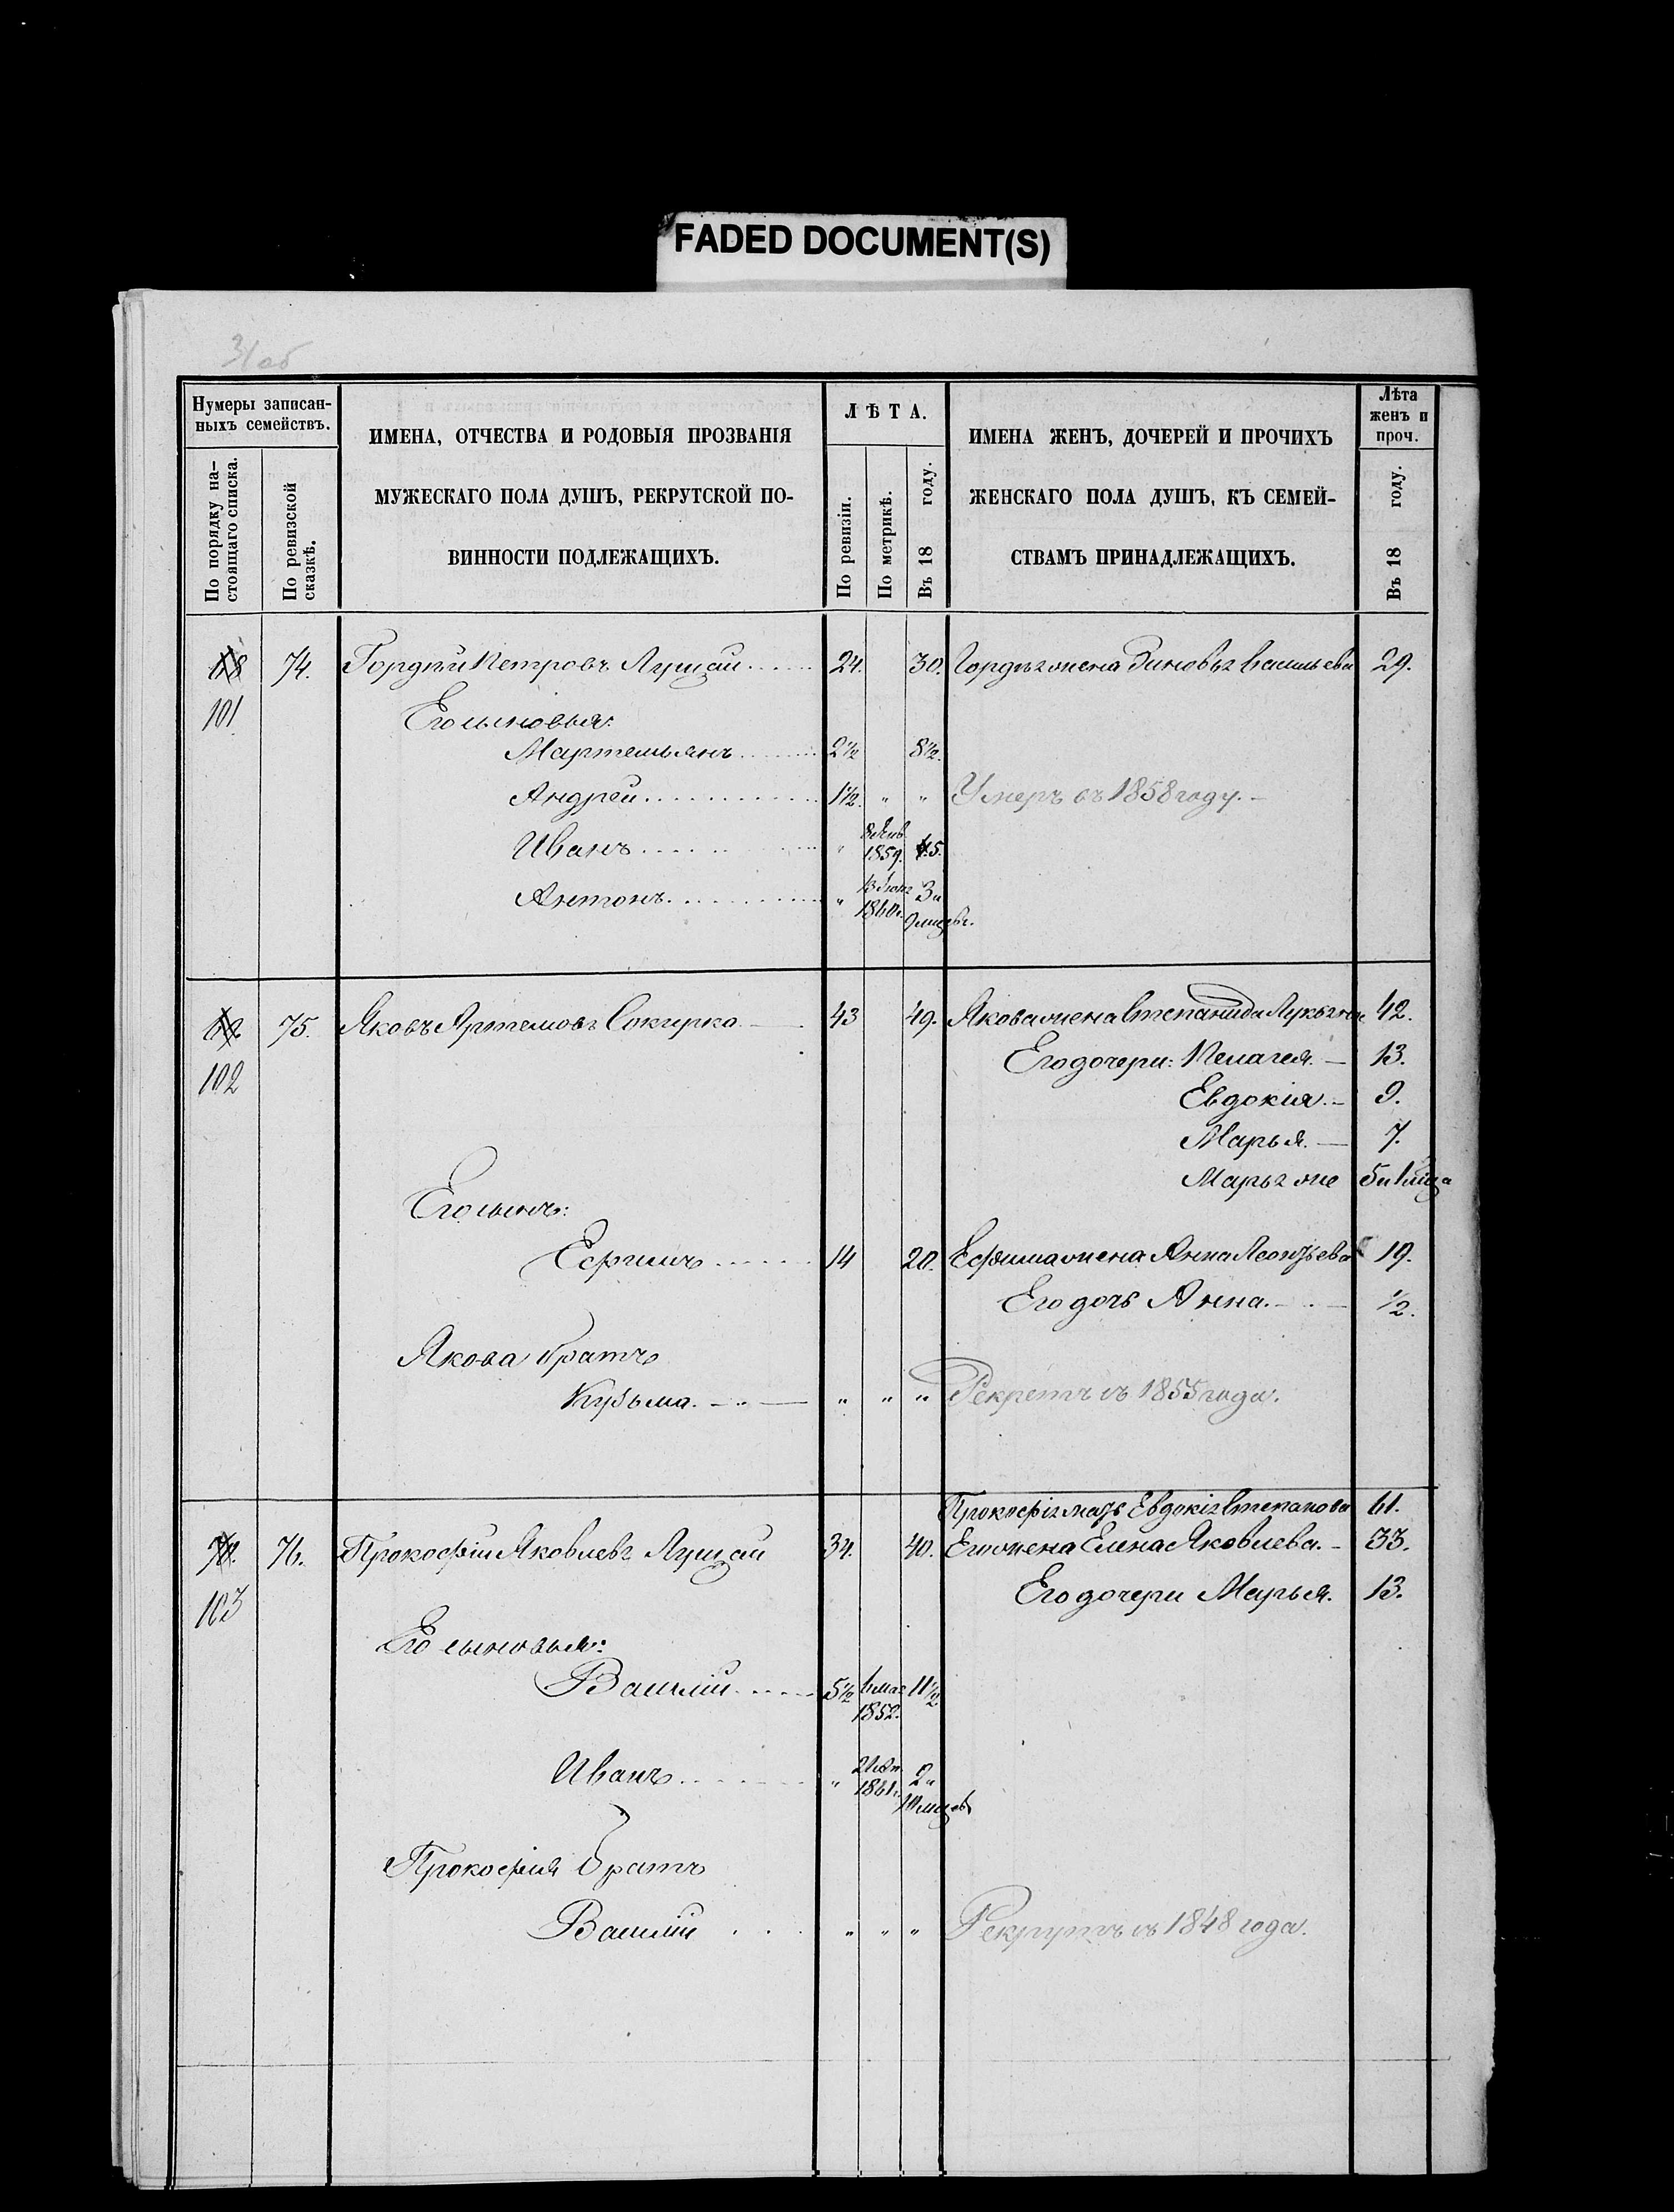 FADED DOCUMENT(S)
31об
Нумеры записан-
ныхъ семействъ.
По порядку на-
стоящаго списка.
По ревизской
сказкѣ.
ИМЕНА, ОТЧЕСТВА И РОДОВЫЯ ПРОЗВАНІЯ
МУЖЕСКАГО ПОЛА ДУШЪ, РЕКРУТСКОЙ ПО-
ВИННОСТИ ПОДЛЕЖАЩИХЪ.
ЛѢТА.
По ревизіи.
По метрикѣ.
Въ 18 году.
ИМЕНА ЖЕНЪ, ДОЧЕРЕЙ И ПРОЧИХЪ
ЖЕНСКАГО ПОЛА ДУШЪ, КЪ СЕМЕЙ-
СТВАМЪ ПРИНАДЛЕЖАЩИХЪ.
Лѣта
женъ и
проч.
Въ 18 году.
68 74. Гордѣй Петровъ Лущай 24. 30. Гордѣя жена Зиновья Васильева 29.
101
Его сыновья:
Мартемьянъ 2½ 8½.
Андрей 1½. " " Умеръ въ 1858 году.
Иванъ " 8 Янв 1859. 5.
Антонъ " 13 Іюня 1860г. 3 и 9 мцевъ.
75. Яковъ Артемовъ Сокирко 43 49. Якова жена Степанида Лукьянов 42.
102
Его дочери: Пелагея. 13.
Евдокія. 9.
Марья. 7.
Марья же 5 и 1 мца
Его сынъ:
Ефимъ 14 20. Ефима жена Анна Леонтьева 19.
Его дочь Анна. ½.
Якова братъ
Кузьма. " " " Рекрутъ съ 1855 года.
Прокофія мать Евдокія Степанова 61.
70. 76. Прокофій Яковлевъ Лущай 34. 40. Его жена Елена Яковлева. 33.
103
Его дочери Марья. 13.
Его сыновья:
Василій 5½ мая 1852. 11½.
Иванъ " 1861г. 2 и 10 мцевъ
Прокофія братъ
Василій " " " Рекрутъ съ 1848 года.